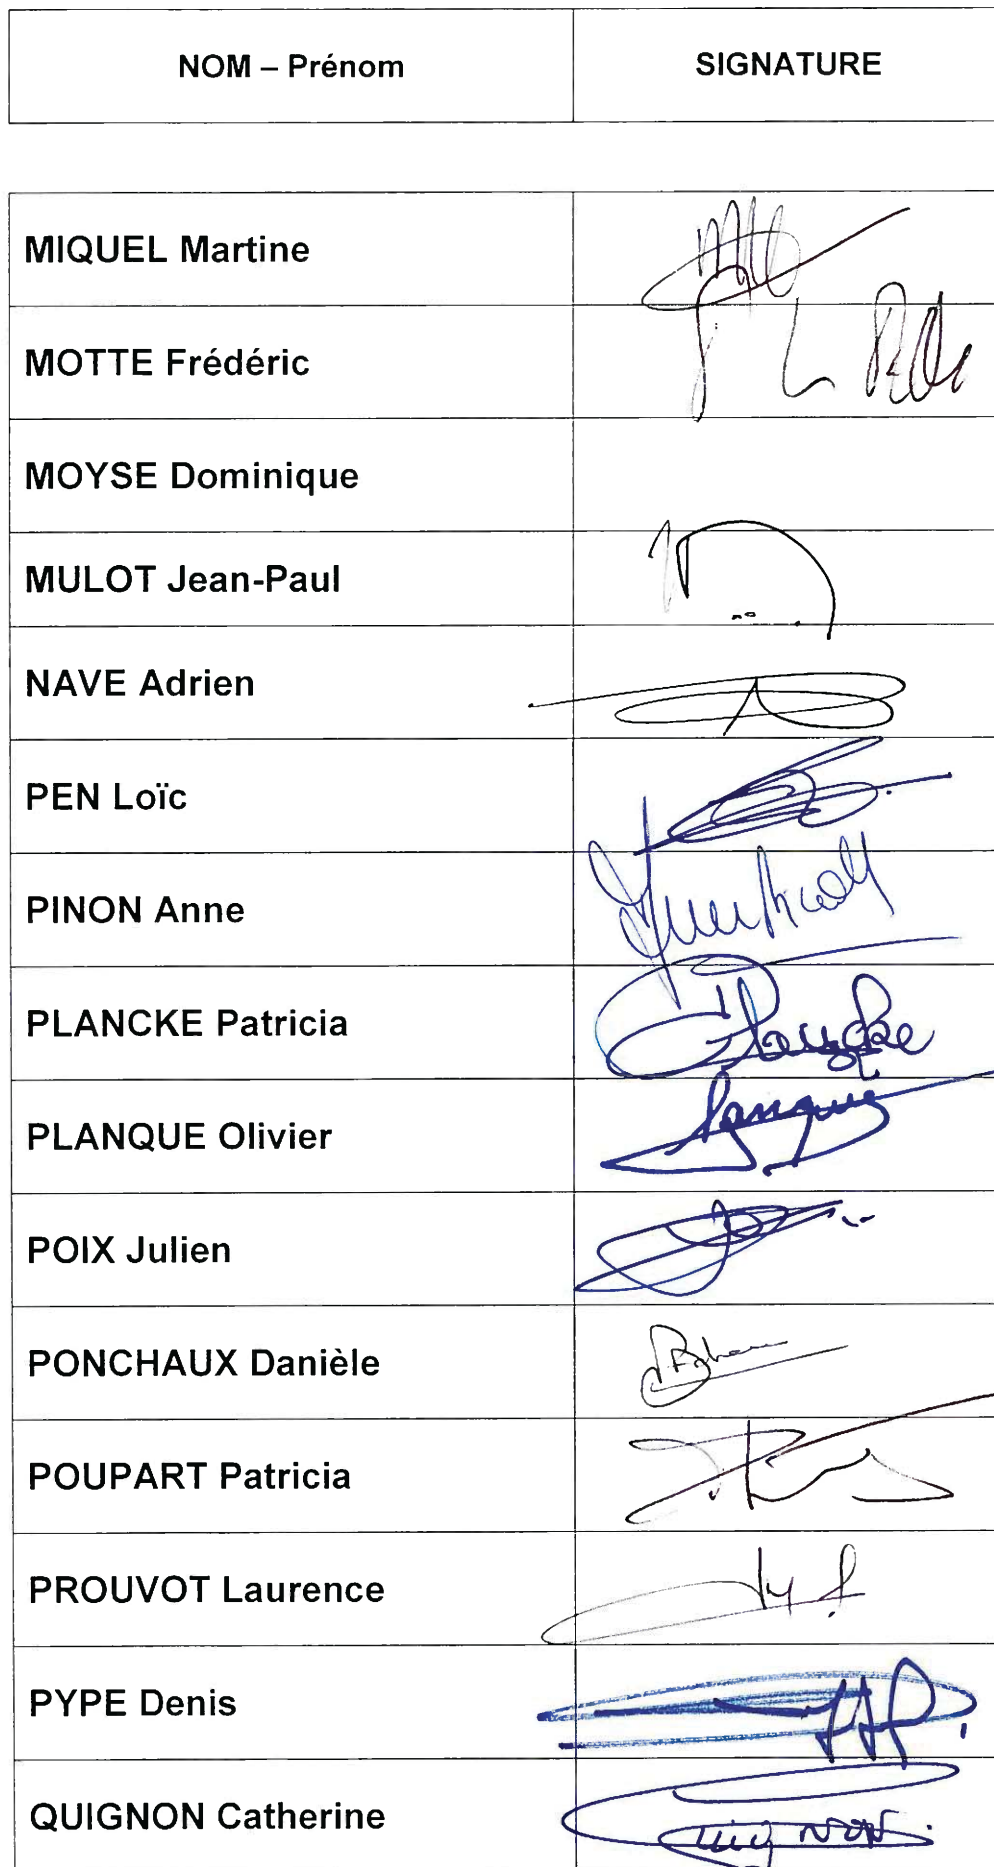 NOM – Prénom SIGNATURE
MIQUEL Martine
MOTTE Frédéric
MOYSE Dominique
MULOT Jean-Paul
NAVE Adrien
PEN Loïc
PINON Anne
PLANCKE Patricia Plancke
PLANQUE Olivier
POIX Julien
PONCHAUX Danièle
POUPART Patricia
PROUVOT Laurence
PYPE Denis
QUIGNON Catherine QuigNON